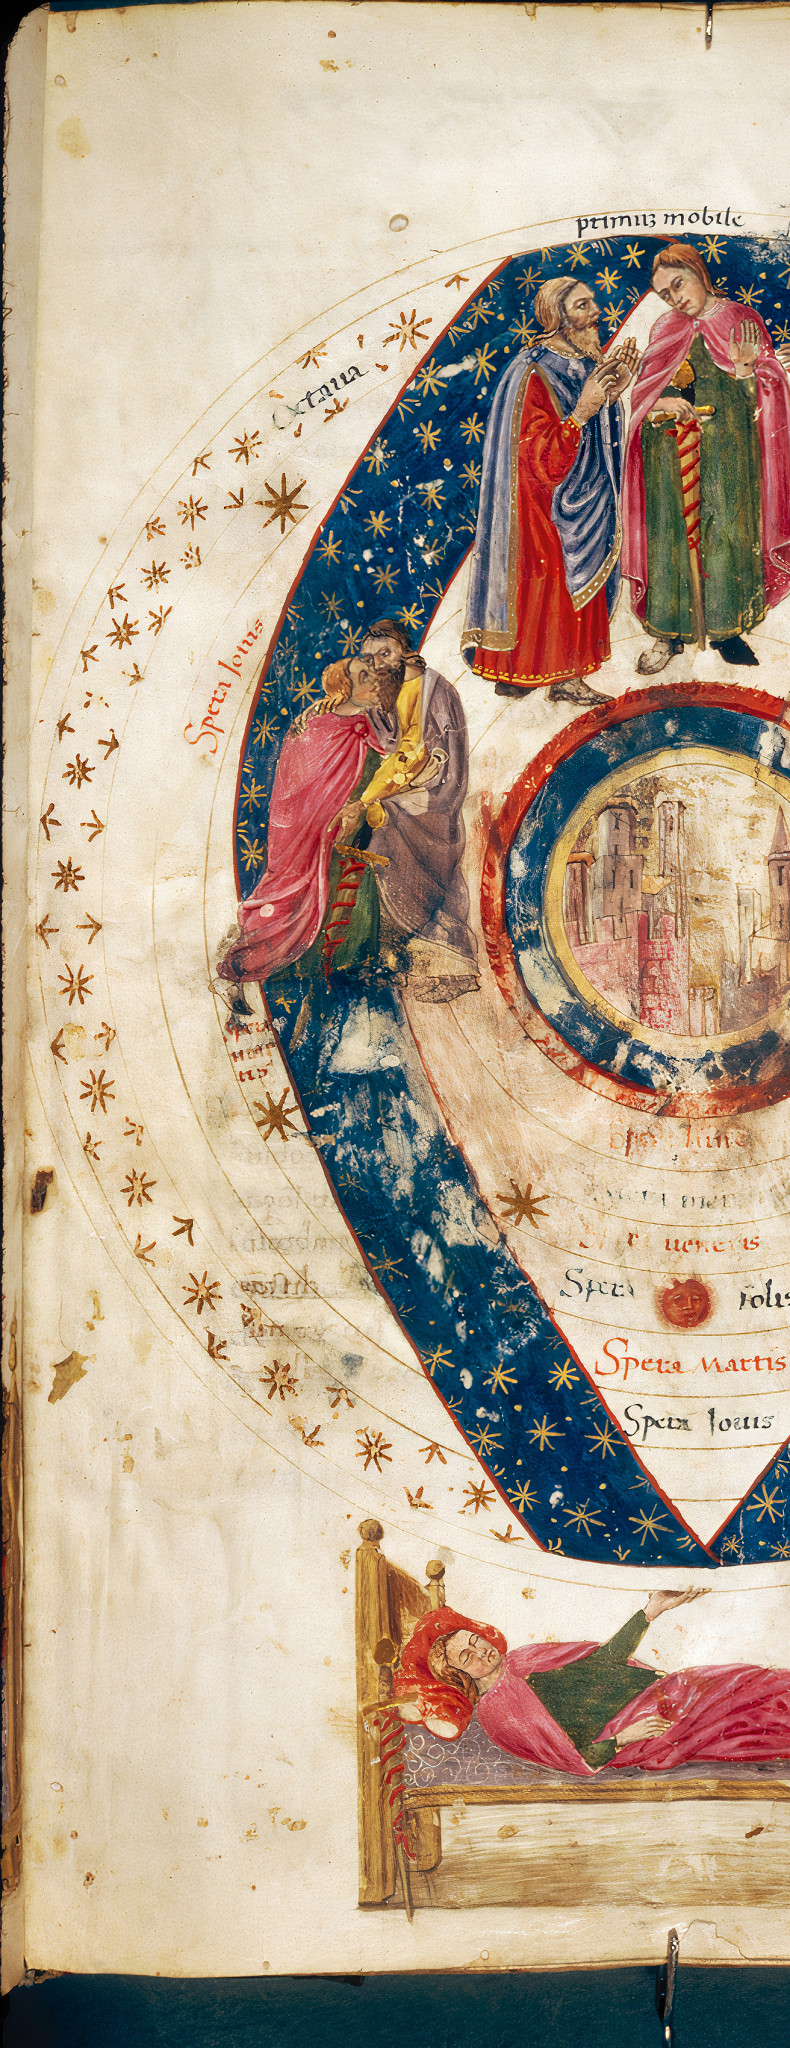 primuz mobile
Octaua
Spera Jouis
Spera
mar
tis
Spera lune
ueneris
Spera solis
Spera Martis
Spera Jouis